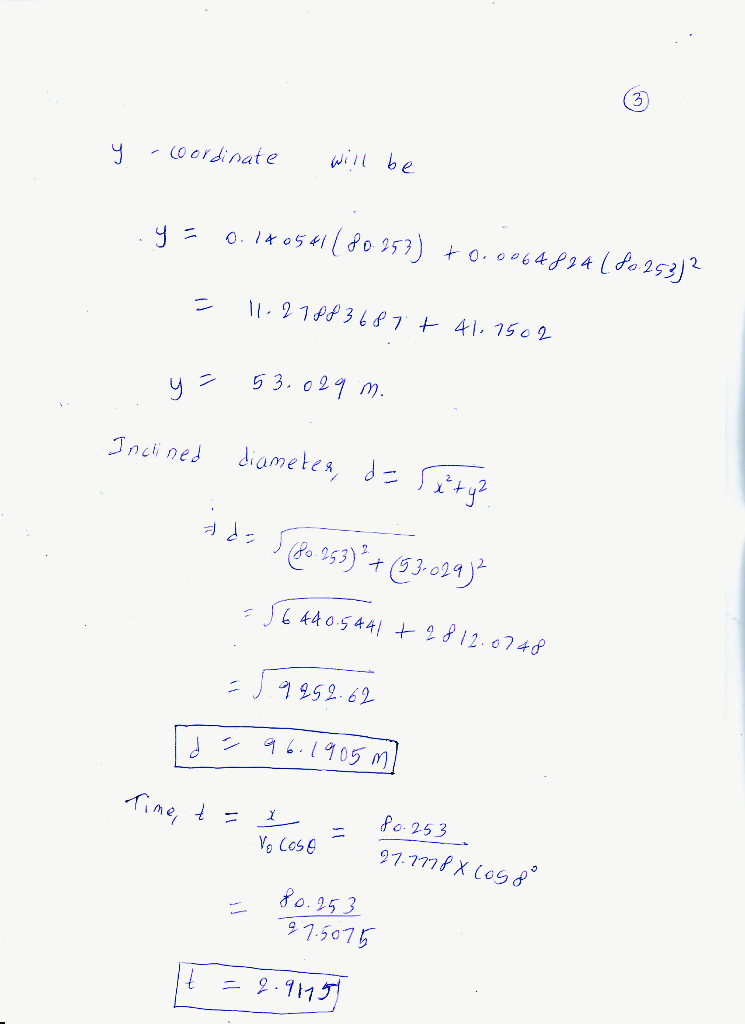 ③
y - coordinate will be
y = 0.140541(80.253) + 0.0064824(80.253)²
= 11.27883687 + 41.7502
y = 53.029 m.
Inclined diameter, d = √x²+y²
⇒ d = √(80.253)²+(53.029)²
= √6440.5441 + 2812.0748
= √9252.62
d = 96.1905 m
Time, t = x / V₀ cosθ = 80.253 / 27.7778 × cos 8°
= 80.253 / 27.5075
t = 2.917s